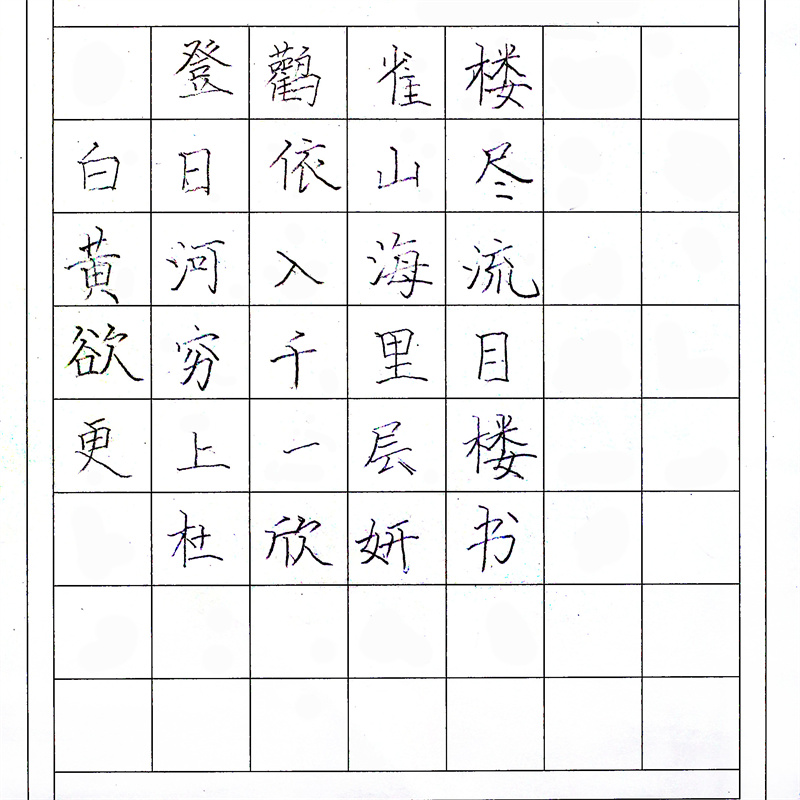 登鸛雀楼
白日依山尽
黄河入海流
欲穷千里目
更上一层楼
杜欣妍书